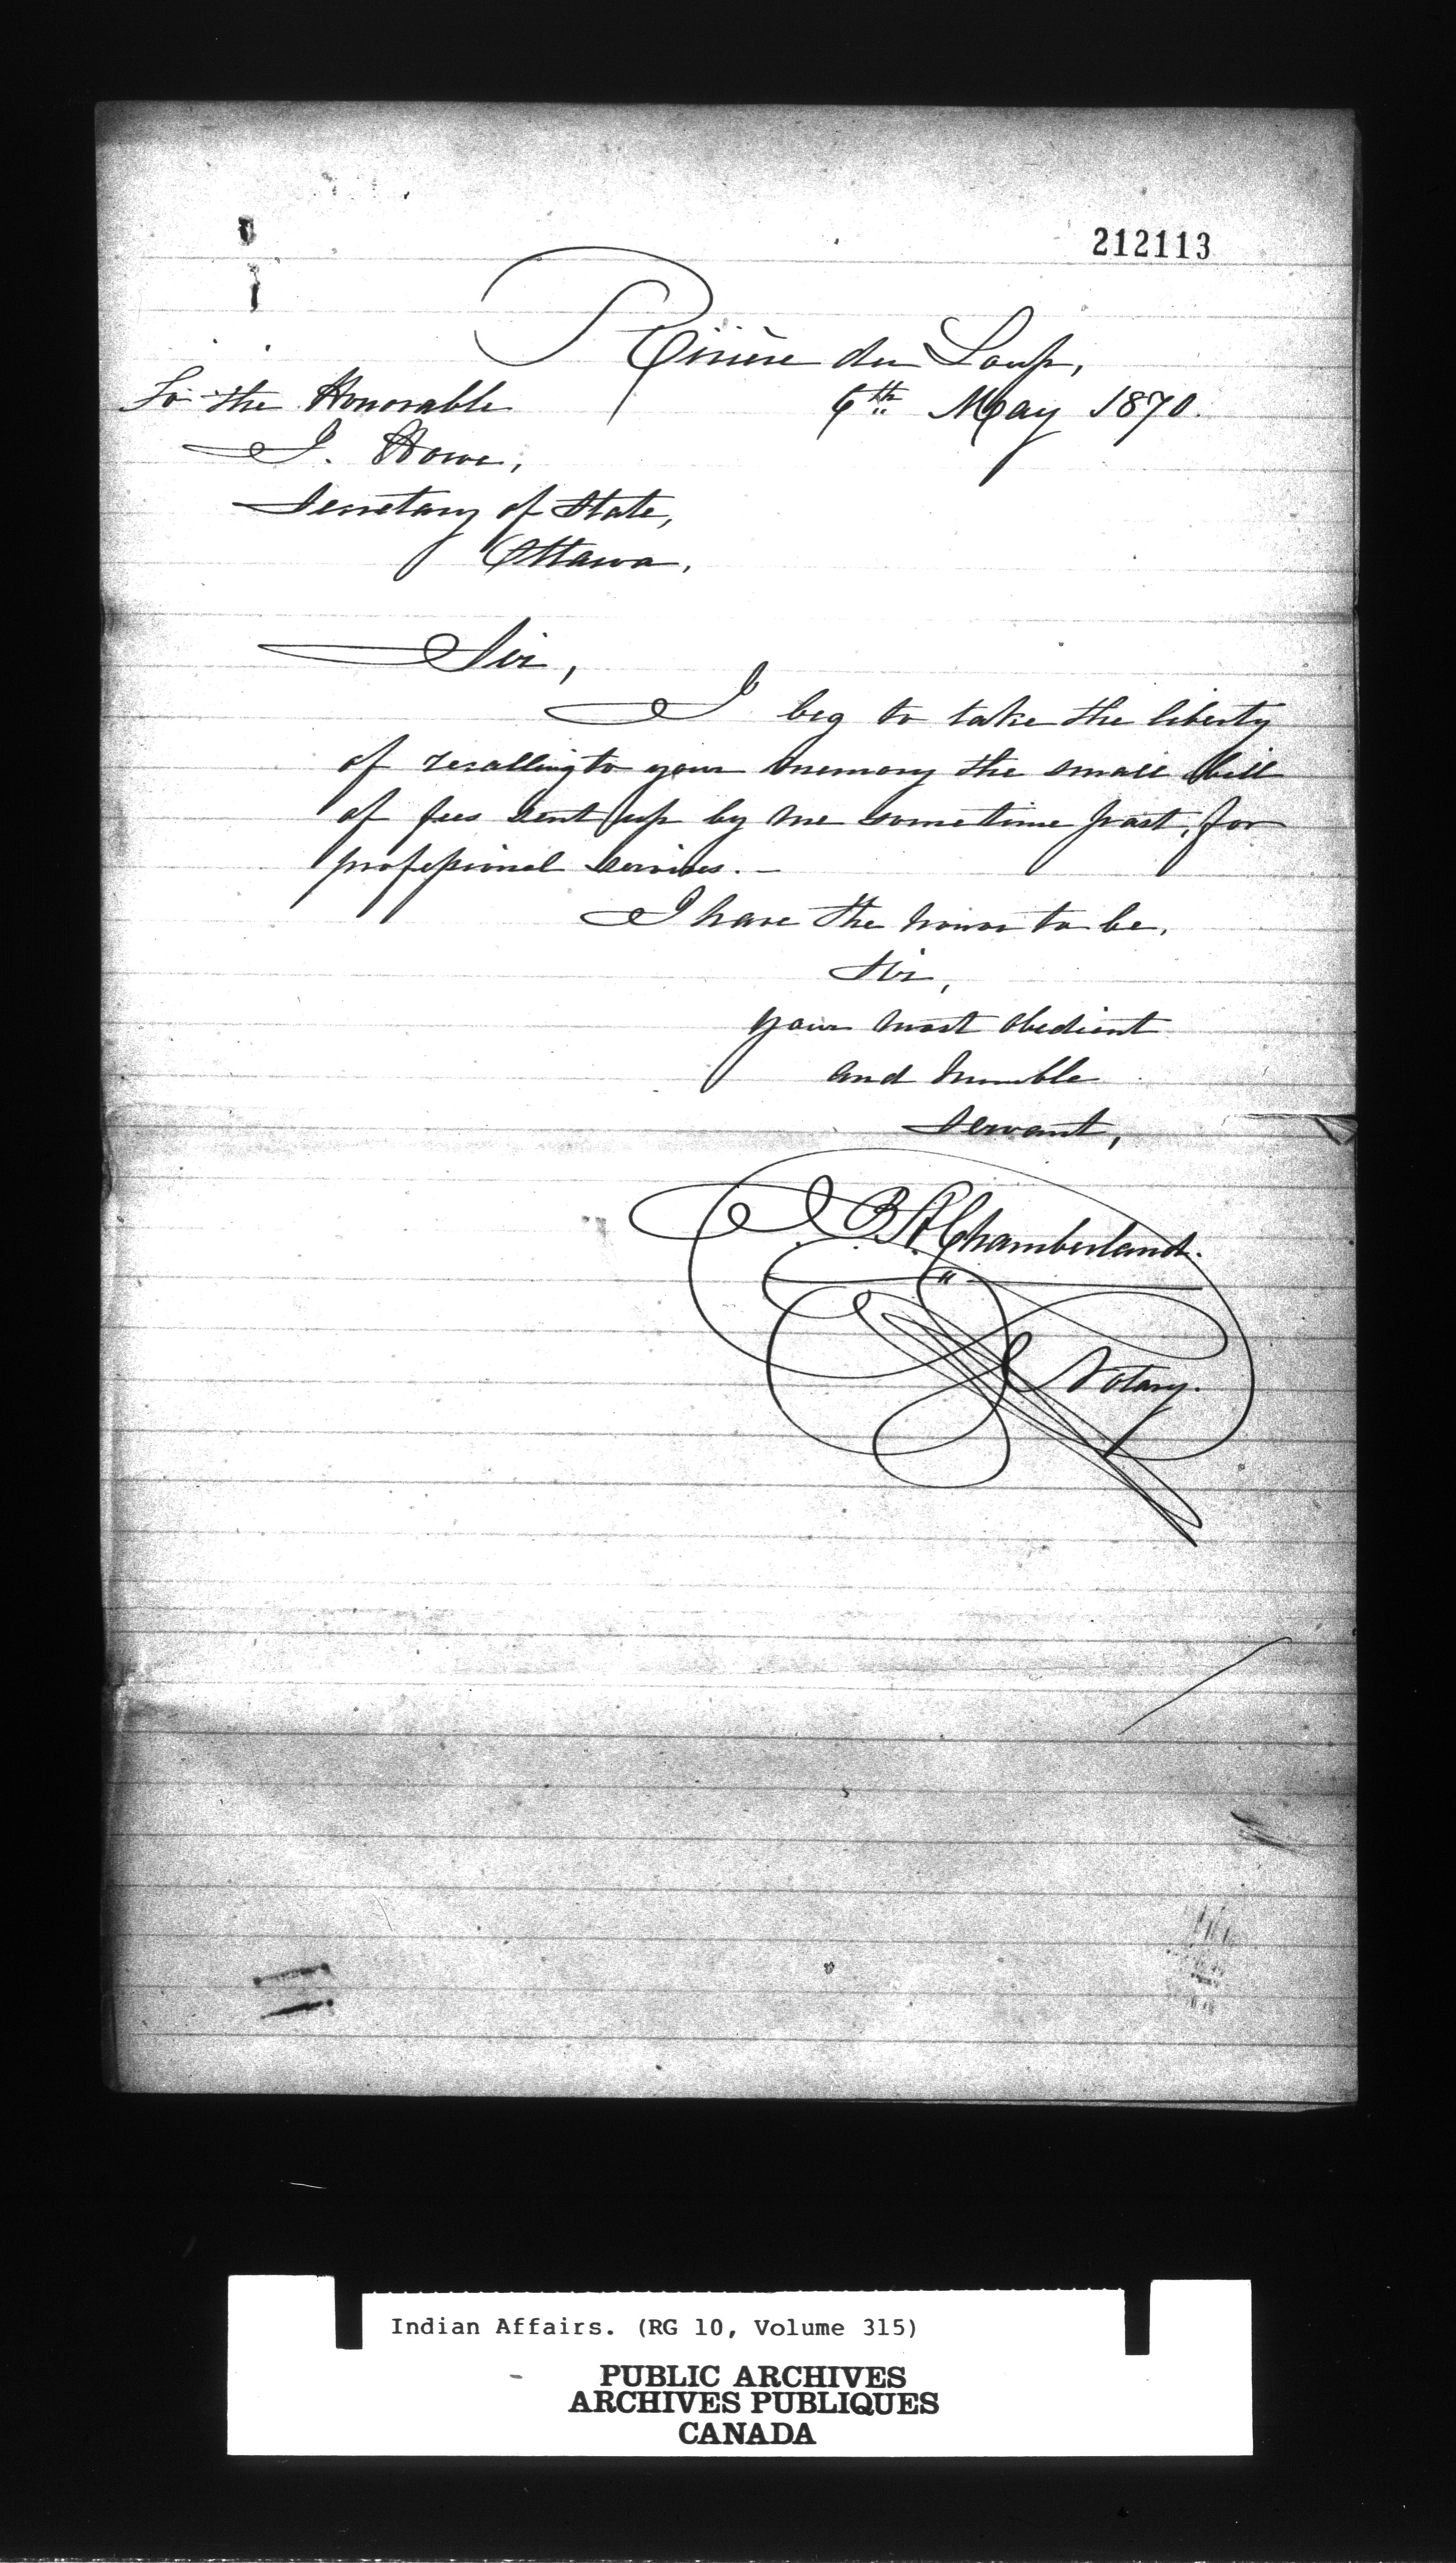 212113
Rivière du Loup,
6th May 1870.
To the Honorable
J. Howe,
Secretary of State,
Ottawa.
Sir,
I beg to take the liberty
of recalling to your memory the small bill
of fees sent up by me sometime past, for
professional services. -
I have the honor to be,
Sir,
your most obedient
and humble
servant,
J. B. Chamberland.
Notary.
Indian Affairs. (RG 10, Volume 315)
PUBLIC ARCHIVES
ARCHIVES PUBLIQUES
CANADA